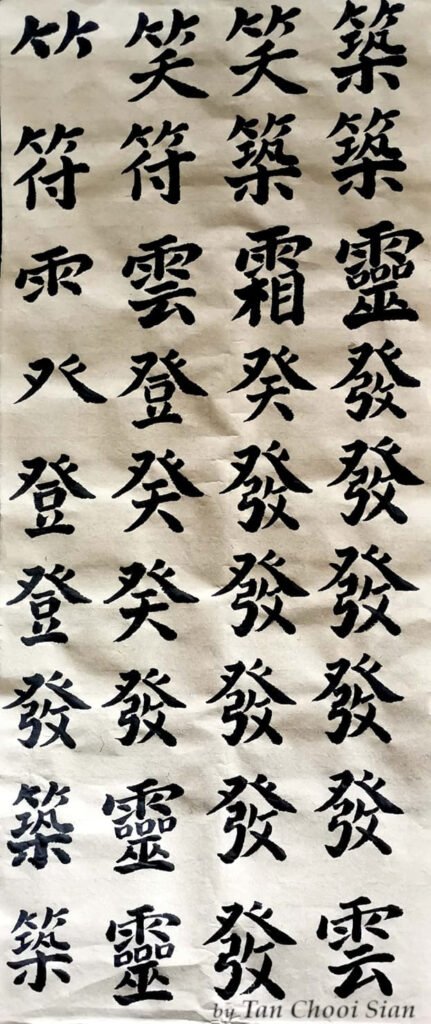 ⺮ 笑 笑 築
符 符 築 築
⻗ 雲 霜 靈
癶 登 癸 發
登 癸 發 發
登 癸 發 發
發 發 發 發
築 靈 發 發
築 靈 發 雲
by Tan Chooi Sian